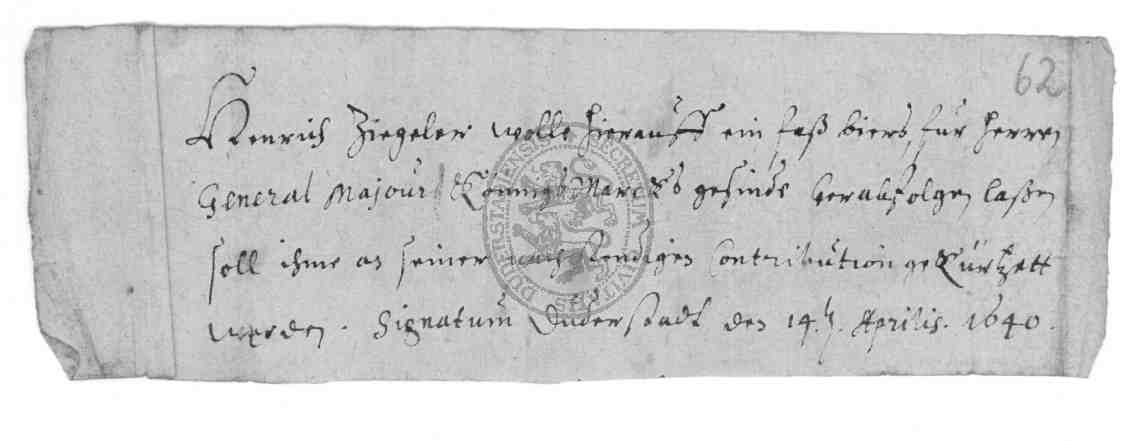 62
Henrich Ziegeler wolle hierauff ein faß biers, für herren
General Majour Königsmarcks gesinde verabfolgen laßen
soll ihme an seiner contribution gekürtzett
werden. Signatum Duderstadt den 14. Aprilis. 1640.
SECRETUM CIVITATIS DUDERSTADENSIS